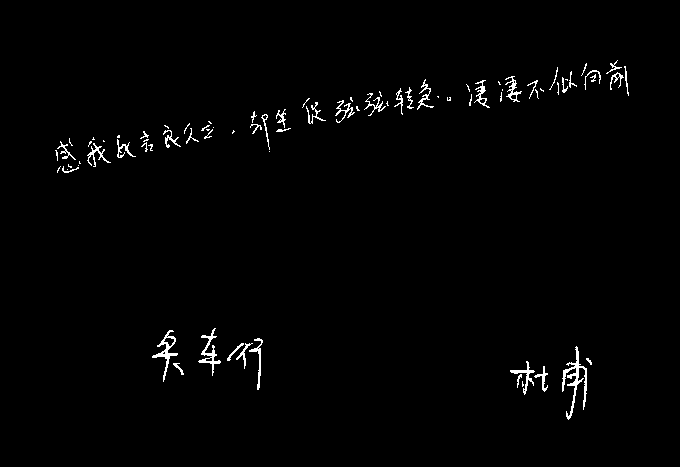 感我此言良久立，却坐促弦弦转急。凄凄不似向前
兵车行
杜甫